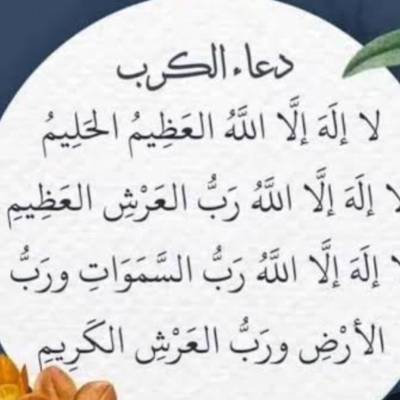 دعاء الكرب
لا إلَهَ إلَّا اللَّهُ العَظِيمُ الحَلِيمُ
لا إلَهَ إلَّا اللَّهُ رَبُّ العَرْشِ العَظِيمِ
لا إلَهَ إلَّا اللَّهُ رَبُّ السَّمَوَاتِ ورَبُّ
الأرْضِ ورَبُّ العَرْشِ الكَرِيمِ